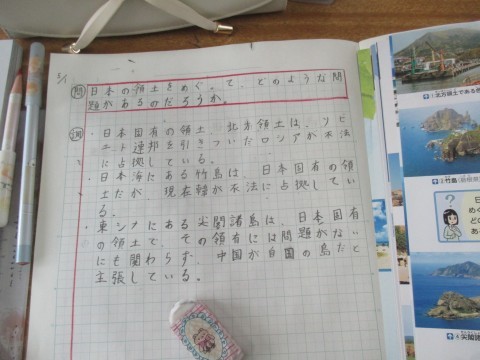 5/1
問 日本の領土をめぐって、どのような問
題があるのだろうか。
調 ・日本固有の領土 北方領土は、ソビ
エト連邦を引きついだロシアが不法
に占拠している。
・日本海にある竹島は、日本固有の領
土だが、現在韓が不法に占拠してい
る。
・東シナにある尖閣諸島は、日本固有
の領土で、その領有には問題がない
にも関わらず、中国が自国の島だと
主張している。
①北方領土である
②竹島(島根県
④尖閣諸